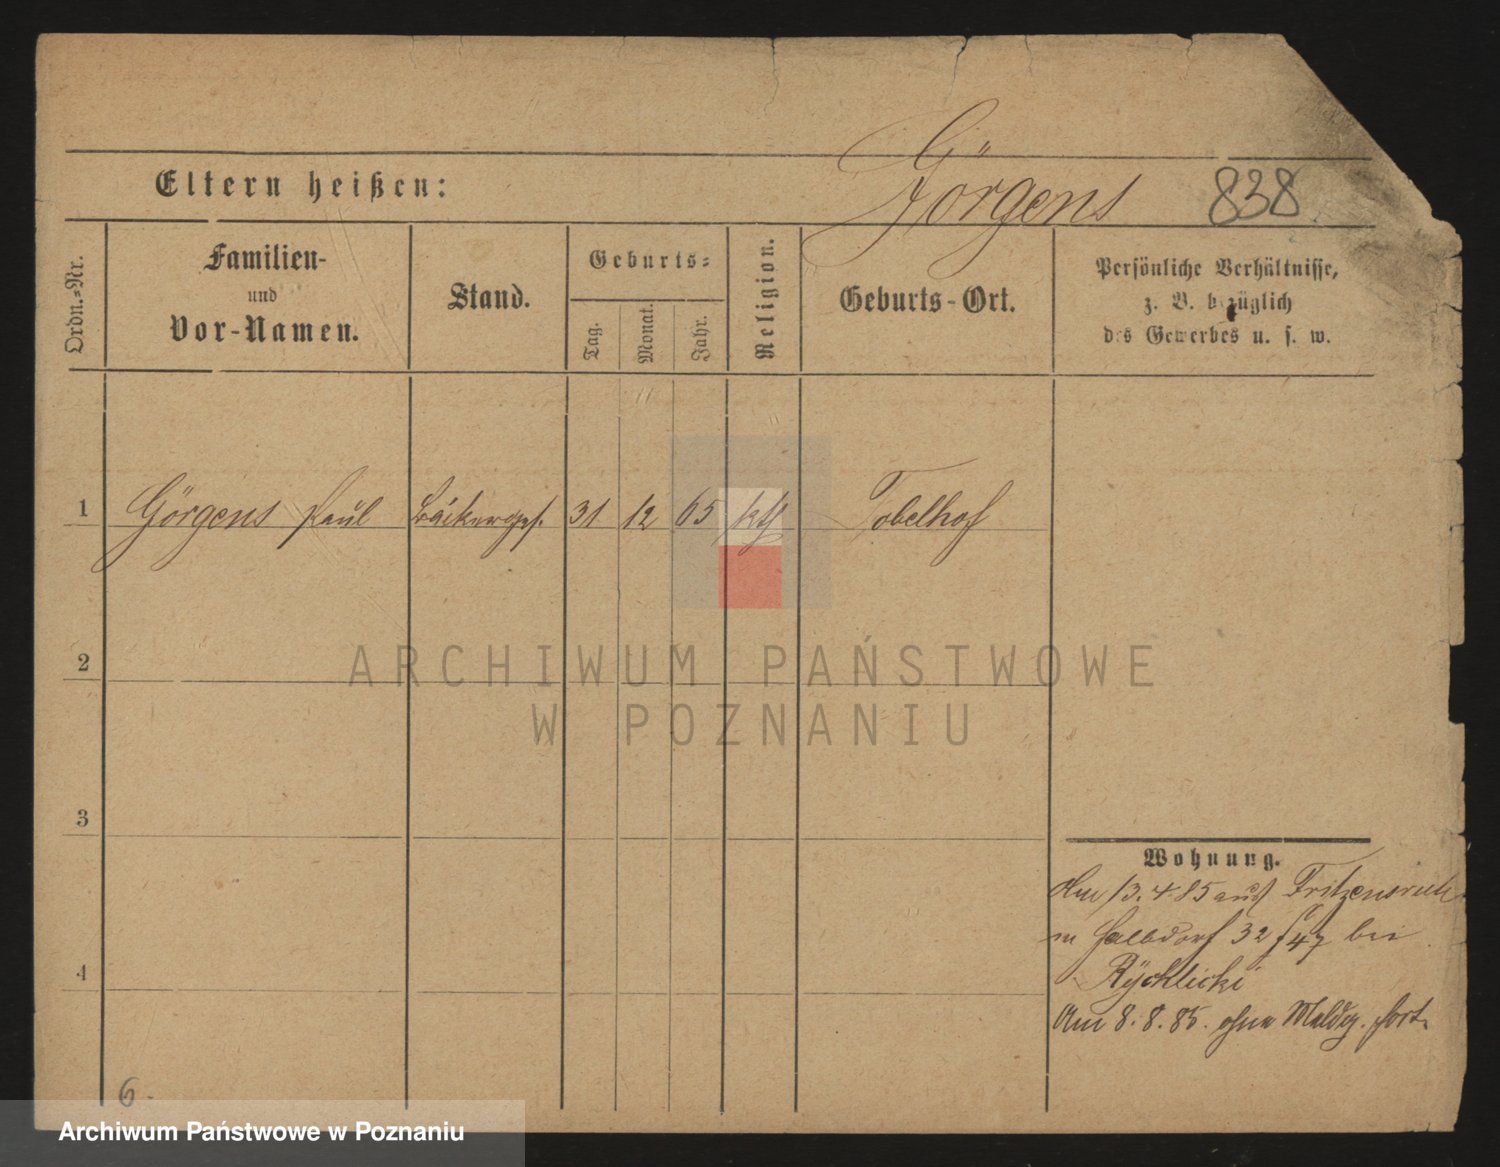 Görgens
838
Eltern heißen:
Ordn.=Nr.
Familien-
und
Vor-Namen.
Stand.
Geburts=
Tag.
Monat.
Jahr.
Religion.
Geburts-Ort.
Persönliche Verhältnisse,
z. B. bezüglich
des Gewerbes u. s. w.
1 Görgens Paul Bäckerges. 31 12 65 kth Tobelhof
2
3
4
ARCHIWUM PAŃSTWOWE
W POZNANIU
Wohnung.
Am 13.4.85 aus Fritzensruh
in Halbdorf 32 f 47 bei
Rycklicki
Am 8.8.85. ohne Meldg. fort.
6.
Archiwum Państwowe w Poznaniu